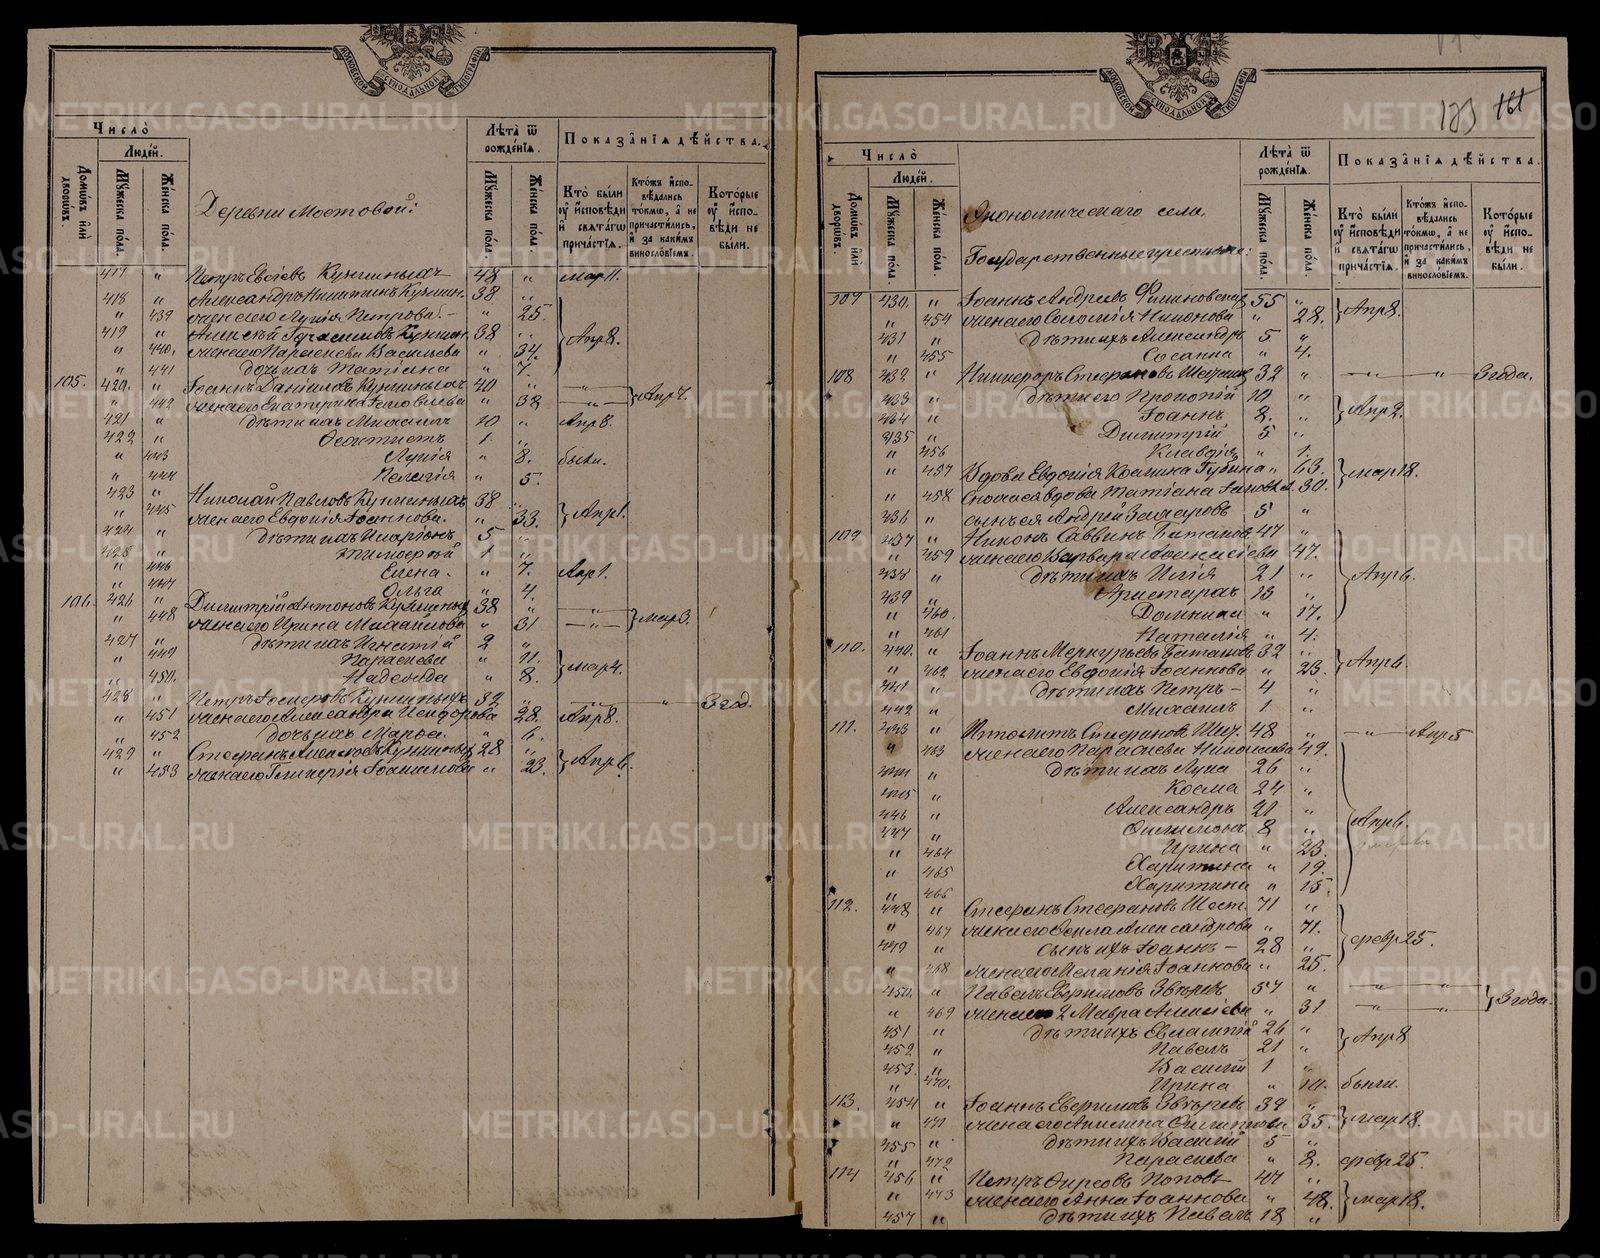 МОСКОВСКОЙ СѴНОДАЛЬНОЙ ТИПОГРАФІИ
Число̀
Людей.
Домѡвъ или дворѡвъ.
Мꙋжеска пола.
Женска пола.
Деревни Мостовой:
Лѣта ѿ рожденїя.
Мꙋжеска пола.
Женска пола.
Показанїѧ дѣйства.
Кто были ꙋ исповѣди и свѧтагѡ причастїѧ.
Ктожъ исповѣдались токмѡ, а не причастились, и за какимъ винословїемъ.
Которые ꙋ исповѣди не были.
417 " Петръ Евсіевъ Кузминыхъ 48 " Мар 11.
418 " Александръ Никитинъ Кузмин. 38 "
" 439 жена его Лукія Петрова. " 25.
419 " Алексѣй Герасимовъ Кузмин. 38 " Апр 8.
" 440. жена его Параскева Васильева " 34.
" 441 дочь ихъ Татіана " 7.
105. 420. " Іоаннъ Даніиловъ Кузминыхъ 40 " — " —
" 442 жена его Екатерина Іаковлева " 38 — " — Апр 7.
421 " дѣти ихъ Михаилъ 10 " Апр 8.
422 " Ѳеоктистъ 1 "
" 443 Лукія " 8. были.
" 444 Пелагія " 5.
423 " Николай Павловъ Кузминыхъ 38 "
" 445 жена его Евдокія Іоаннова. " 33. Апр 1.
424 " дѣти ихъ Иларіонъ 5 "
425 " Тимоѳей 1 "
" 446 Елена. " 7. Апр 1.
" 447 Ольга " 4.
106. 426 " Димитрій Антоновъ Кузминых 38 " — " —
" 448 жена его Ирина Михайлова " 31 — " — Мар 3.
427 " дѣти ихъ Игнатій 2 "
" 449 Параскева " 11. Мар 4.
" 450. Надежда " 8.
428 " Петръ Іосифовъ Кузминыхъ 32 " — " — 3 год.
" 451 жена его Александра Исидорова " 28. Апр 8.
" 452 дочь ихъ Марѳа. " 6.
429 " Стефанъ Алексѣевъ Кузминых 28 "
" 453 жена его Гликерія Іоакимова " 23. Апр 6.
МОСКОВСКОЙ СѴНОДАЛЬНОЙ ТИПОГРАФІИ
123 161
Число̀
Людей.
Домѡвъ или дворѡвъ.
Мꙋжеска пола.
Женска пола.
Экономическаго села.
Государственные крестьяне:
Лѣта ѿ рожденїя.
Мꙋжеска пола.
Женска пола.
Показанїѧ дѣйства.
Кто были ꙋ исповѣди и свѧтагѡ причастїѧ.
Ктожъ исповѣдались токмѡ, а не причастились, и за какимъ винословїемъ.
Которые ꙋ исповѣди не были.
107 430. " Іоаннъ Андреевъ 55 "
" 454 жена его Соломія Никонова " 28. Апр 8.
431 " дѣти ихъ Александръ 5 "
" 455 Сосанна " 4.
108 432 " Никифоръ Стефановъ 32 " — " — 3 года.
433 " дѣти его Прокопій 10 "
434 " Іоаннъ 8. " Апр 2.
435 " Димитрій 5 "
" 456 Клавдія " 1.
" 457 Вдова Евдокія Космина Губина " 63. Мар 18.
" 458 Сноха ея вдова Татіана Іаковл. 30.
436 " сынъ ея Андрей Захаровъ 5 "
109 437 " Никонъ Саввинъ Батаковъ 47 "
" 459 жена его Варвара Аѳанасіева 47.
438 " дѣти ихъ Илія 21 " Апр 6.
439 " Аристархъ 13 "
" 460. Домникія " 17.
" 461 Наталія " 4.
110. 440. " Іоаннъ Меркурьевъ Батаковъ 32 "
" 462 жена его Евдокія Іоаннова " 23. Апр 6.
441 " дѣти ихъ Петръ 4 "
442 " Михаилъ 1 "
111. 443 " Ипполитъ Стефановъ 48 " — " — Апр 5
" 463 жена его Параскева Николаева 49.
444 " дѣти ихъ Лука 26 "
445 " Косма 24 "
446 " Александръ 21 " Апр 6.
447 " Филимонъ 8 "
" 464 Ирина " 23.
" 465 Харитина " 19.
" 466 Харитина " 15.
112. 448 " Стефанъ Стефановъ Шест. 71 "
" 467 жена его Ѳекла Александрова " 71.
449 " сынъ ихъ Іоаннъ 28 " февр 25.
" 468 жена его Меланія Іоаннова " 25.
450. " Павелъ Ефремовъ Звѣревъ 57 " — " —
" 469 жена его 2 Мавра Алексіева " 31 — " — 3 года.
451 " дѣти ихъ Евлампій 26 "
452 " Павелъ 21 " Апр 8
453. " Василій 1 "
" 470. Ирина " 10. были.
113. 454 " Іоаннъ Ефремовъ Звѣревъ 39 "
" 471 жена его Акилина Филиппова 35. Мар 18.
455 " дѣти ихъ Василій 5 "
" 472 Параскева " 8. февр 25.
114 456 " Петръ Фирсовъ Поповъ 47 "
" 473 жена его Анна Іоаннова " 48. Мар 18.
457 " дѣти ихъ Павелъ 18 "
METRIKI.GASO-URAL.RU